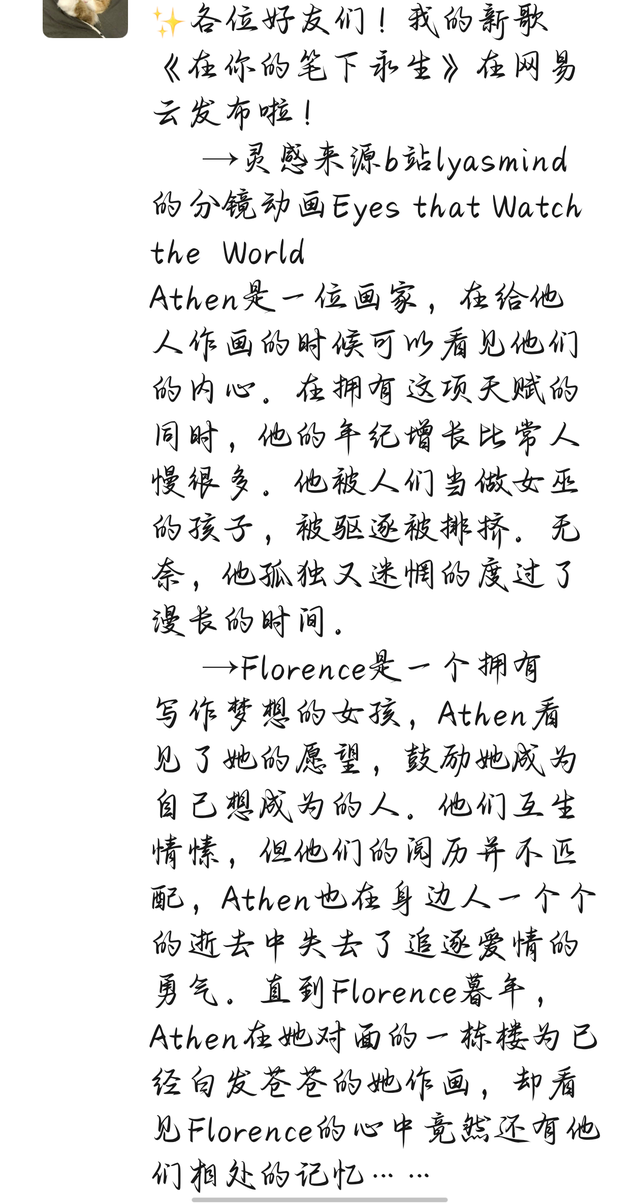 ✨各位好友们！我的新歌
《在你的笔下永生》在网易
云发布啦！
→灵感来源b站lyasmind
的分镜动画Eyes that Watch
the World
Athen是一位画家，在给他
人作画的时候可以看见他们
的内心。在拥有这项天赋的
同时，他的年纪增长比常人
慢很多。他被人们当做女巫
的孩子，被驱逐被排挤。无
奈，他孤独又迷惘的度过了
漫长的时间。
→Florence是一个拥有
写作梦想的女孩，Athen看
见了她的愿望，鼓励她成为
自己想成为的人。他们互生
情愫，但他们的阅历并不匹
配，Athen也在身边人一个个
的逝去中失去了追逐爱情的
勇气。直到Florence暮年，
Athen在她对面的一栋楼为已
经白发苍苍的她作画，却看
见Florence的心中竟然还有他
们相处的记忆… …